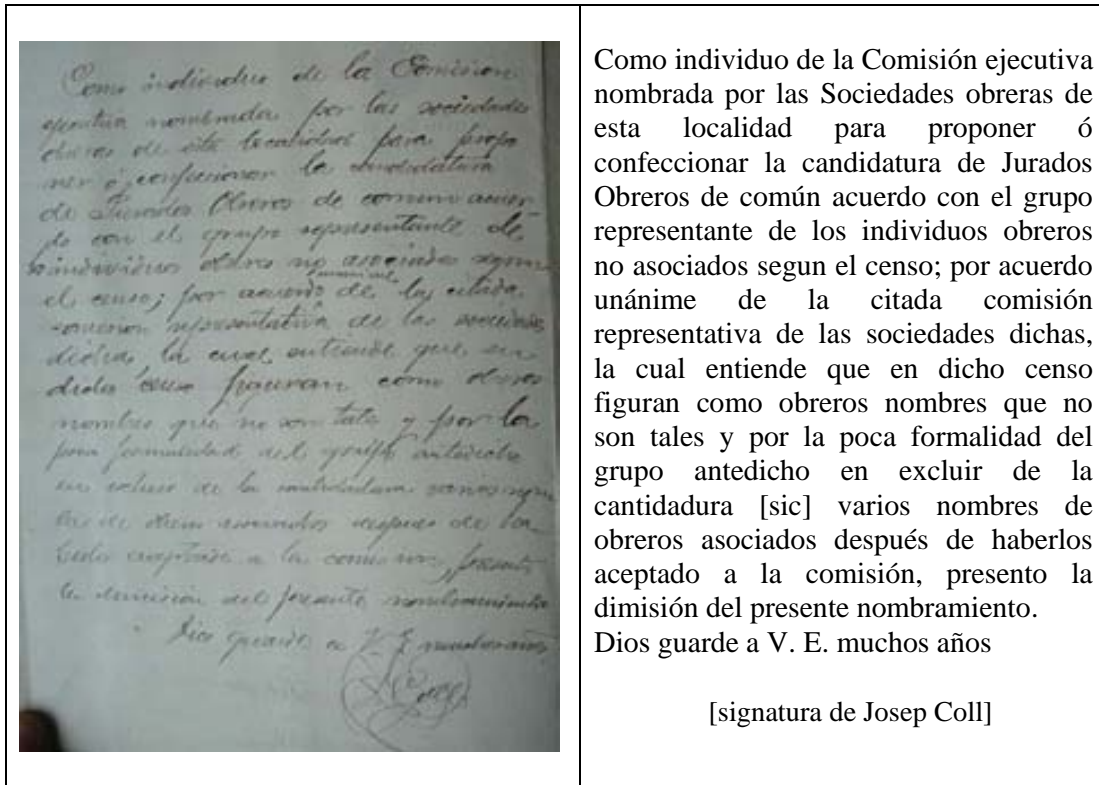 Como individuo de la Comision
ejecutiva nombrada por las sociedades
obreras de esta localidad para propo
ner ó confeccionar la candidatura
de Jurados Obreros de comun acuer-
do con el grupo representante de
individuos obreros no asociados segun
el censo; por acuerdo unanime de la citada
comision representativa de las sociedades
dichas, la cual entiende que en
dicho censo figuran como obreros
nombres que no son tales y por la
poca formalidad del grupo antedicho
en excluir de la varios
de obreros asociados despues de
aceptado a la comision, presento
la dimision del presente nombramiento
Dios guarde a V. E. muchos años
Coll
Como individuo de la Comisión ejecutiva
nombrada por las Sociedades obreras de
esta localidad para proponer ó
confeccionar la candidatura de Jurados
Obreros de común acuerdo con el grupo
representante de los individuos obreros
no asociados segun el censo; por acuerdo
unánime de la citada comisión
representativa de las sociedades dichas,
la cual entiende que en dicho censo
figuran como obreros nombres que no
son tales y por la poca formalidad del
grupo antedicho en excluir de la
cantidadura [sic] varios nombres de
obreros asociados después de haberlos
aceptado a la comisión, presento la
dimisión del presente nombramiento.
Dios guarde a V. E. muchos años
[signatura de Josep Coll]